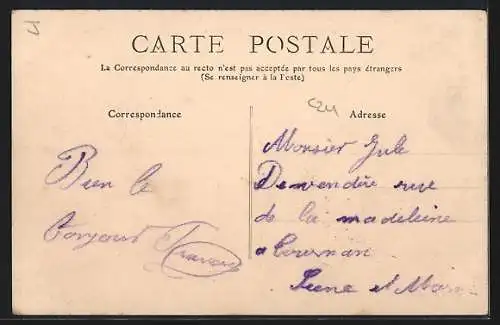 CARTE POSTALE
La Correspondance au recto n'est pas acceptée par tous les pays étrangers
(Se renseigner à la Poste)
Correspondance
Adresse
Bien le
Monsieur Jule
rue
de la madeleine
a Tournan
Seine et Marn